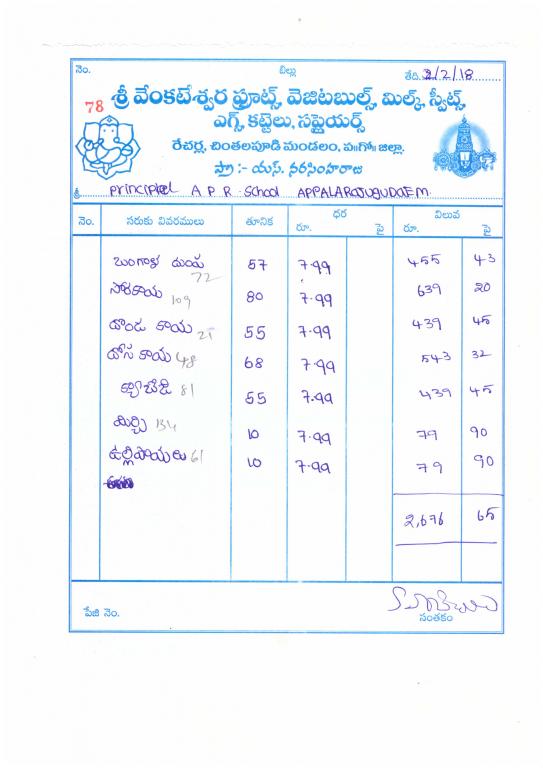 నెం. బిల్లు తేది. 2/2/18
78 శ్రీ వేంకటేశ్వర ఫ్రూట్స్, వెజిటబుల్స్, మిల్క్, స్వీట్స్,
ఎగ్స్, కట్టెలు, సప్లైయర్స్
రేచర్ల, చింతలపూడి మండలం, ప॥గో॥ జిల్లా.
ప్రొ :- యస్. నరసింహరాజు
శ్రీ principal A P R School APPALARAJUGUDAEM
నెం. సరుకు వివరములు తూనిక ధర విలువ
రూ. పై రూ. పై
బంగాళ దుంప 72 57 7.99 455 43
సోరకాయ 109 80 7.99 639 20
దొండ కాయ 21 55 7.99 439 45
దోస కాయ 48 68 7.99 543 32
క్యాబేజి 81 55 7.99 439 45
మిర్చి 134 10 7.99 79 90
ఉల్లిపాయలు 61 10 7.99 79 90
2,676 65
పేజి నెం. సంతకం